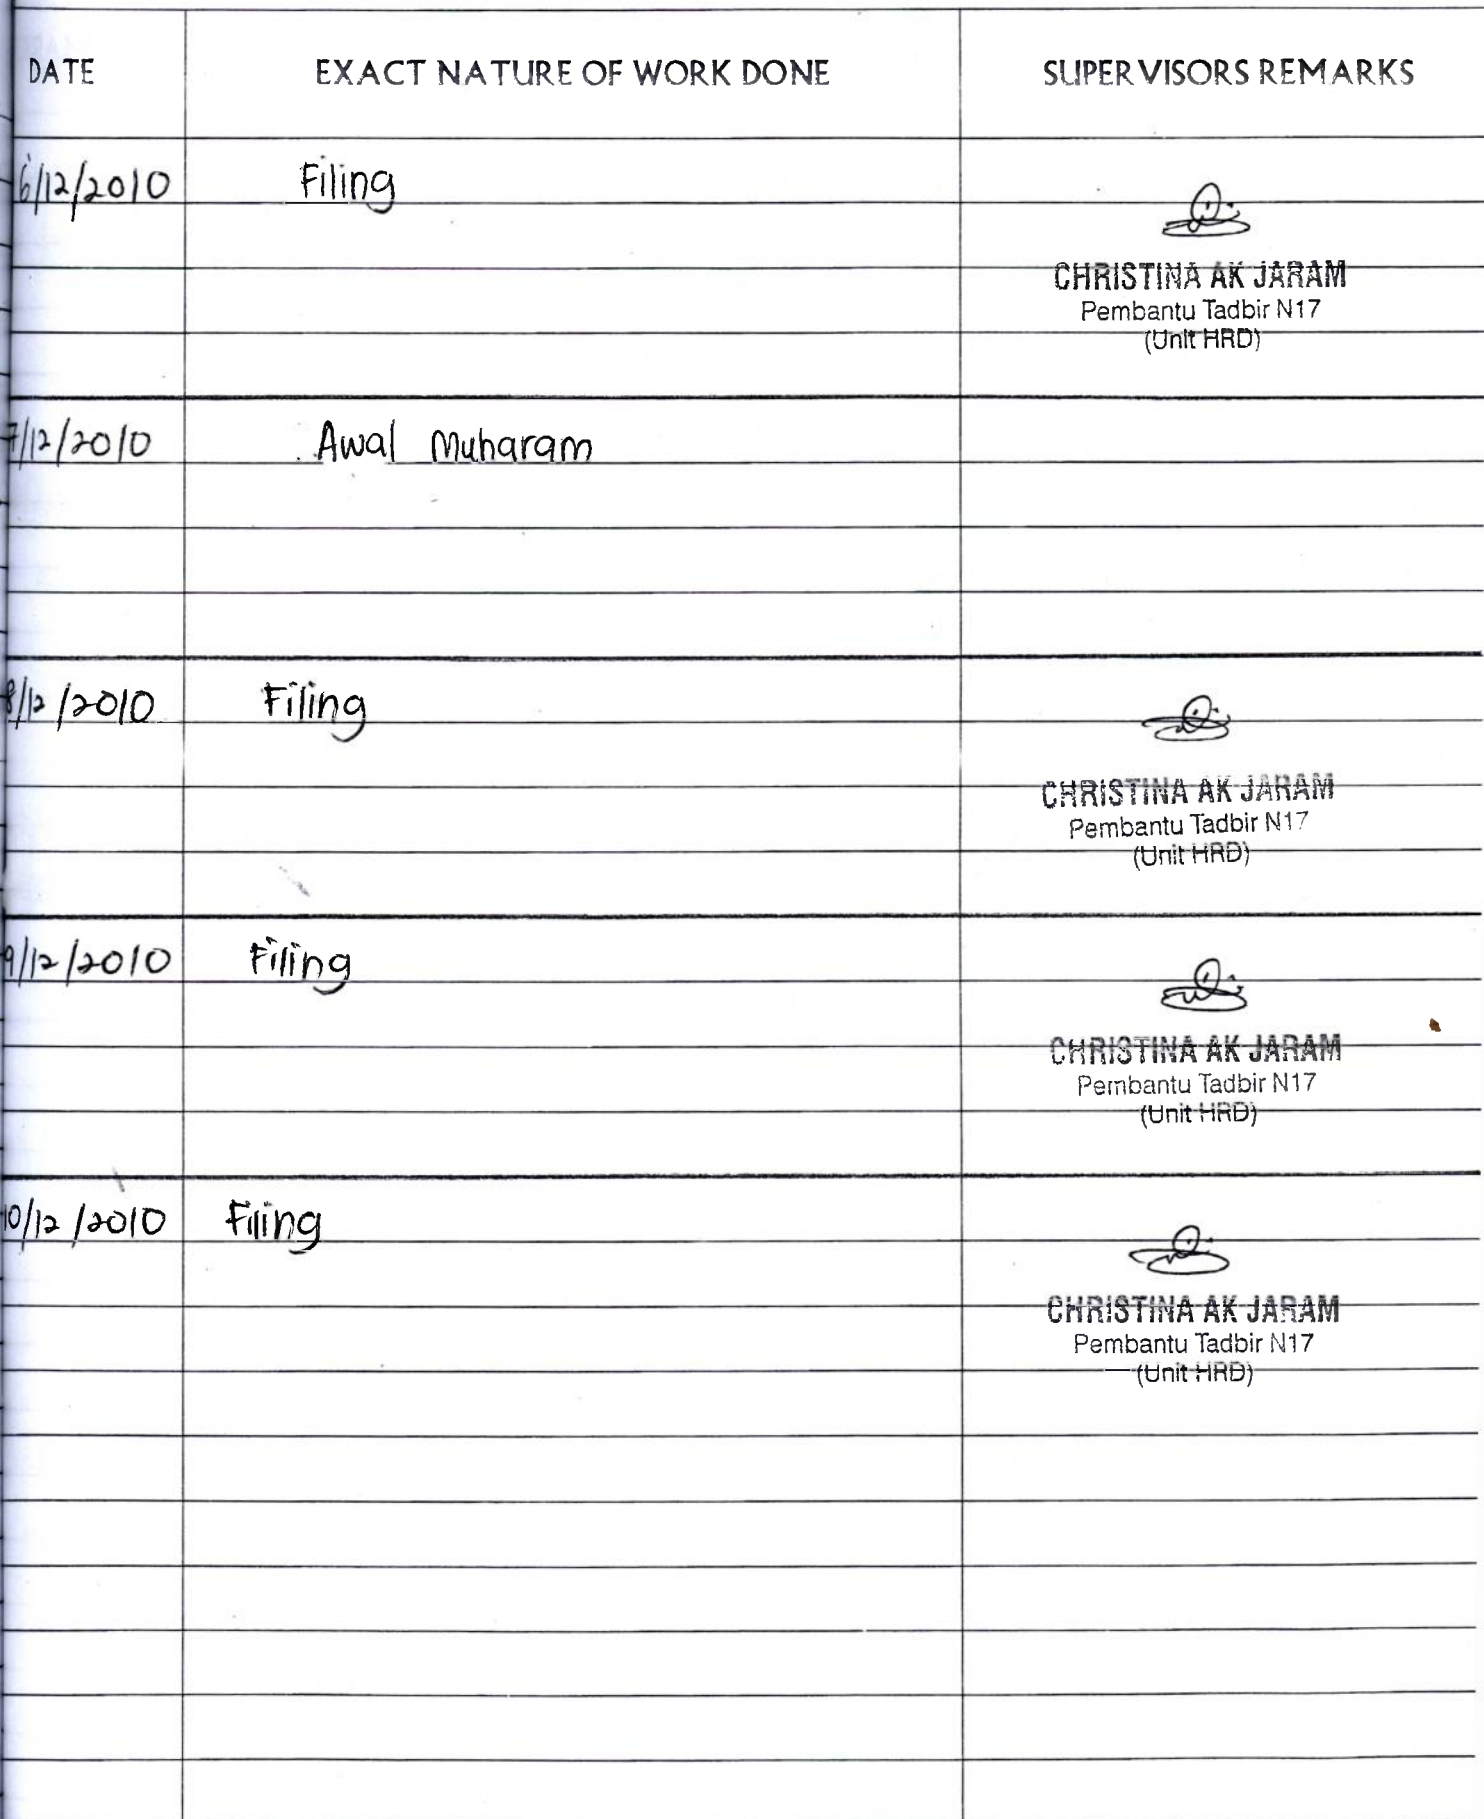 DATE EXACT NATURE OF WORK DONE SUPERVISORS REMARKS
6/12/2010 Filing
CHRISTINA AK JARAM
Pembantu Tadbir N17
(Unit HRD)
7/12/2010 Awal Muharam
8/12/2010 Filing
CHRISTINA AK JARAM
Pembantu Tadbir N17
(Unit HRD)
9/12/2010 Filing
CHRISTINA AK JARAM
Pembantu Tadbir N17
(Unit HRD)
10/12/2010 Filing
CHRISTINA AK JARAM
Pembantu Tadbir N17
(Unit HRD)